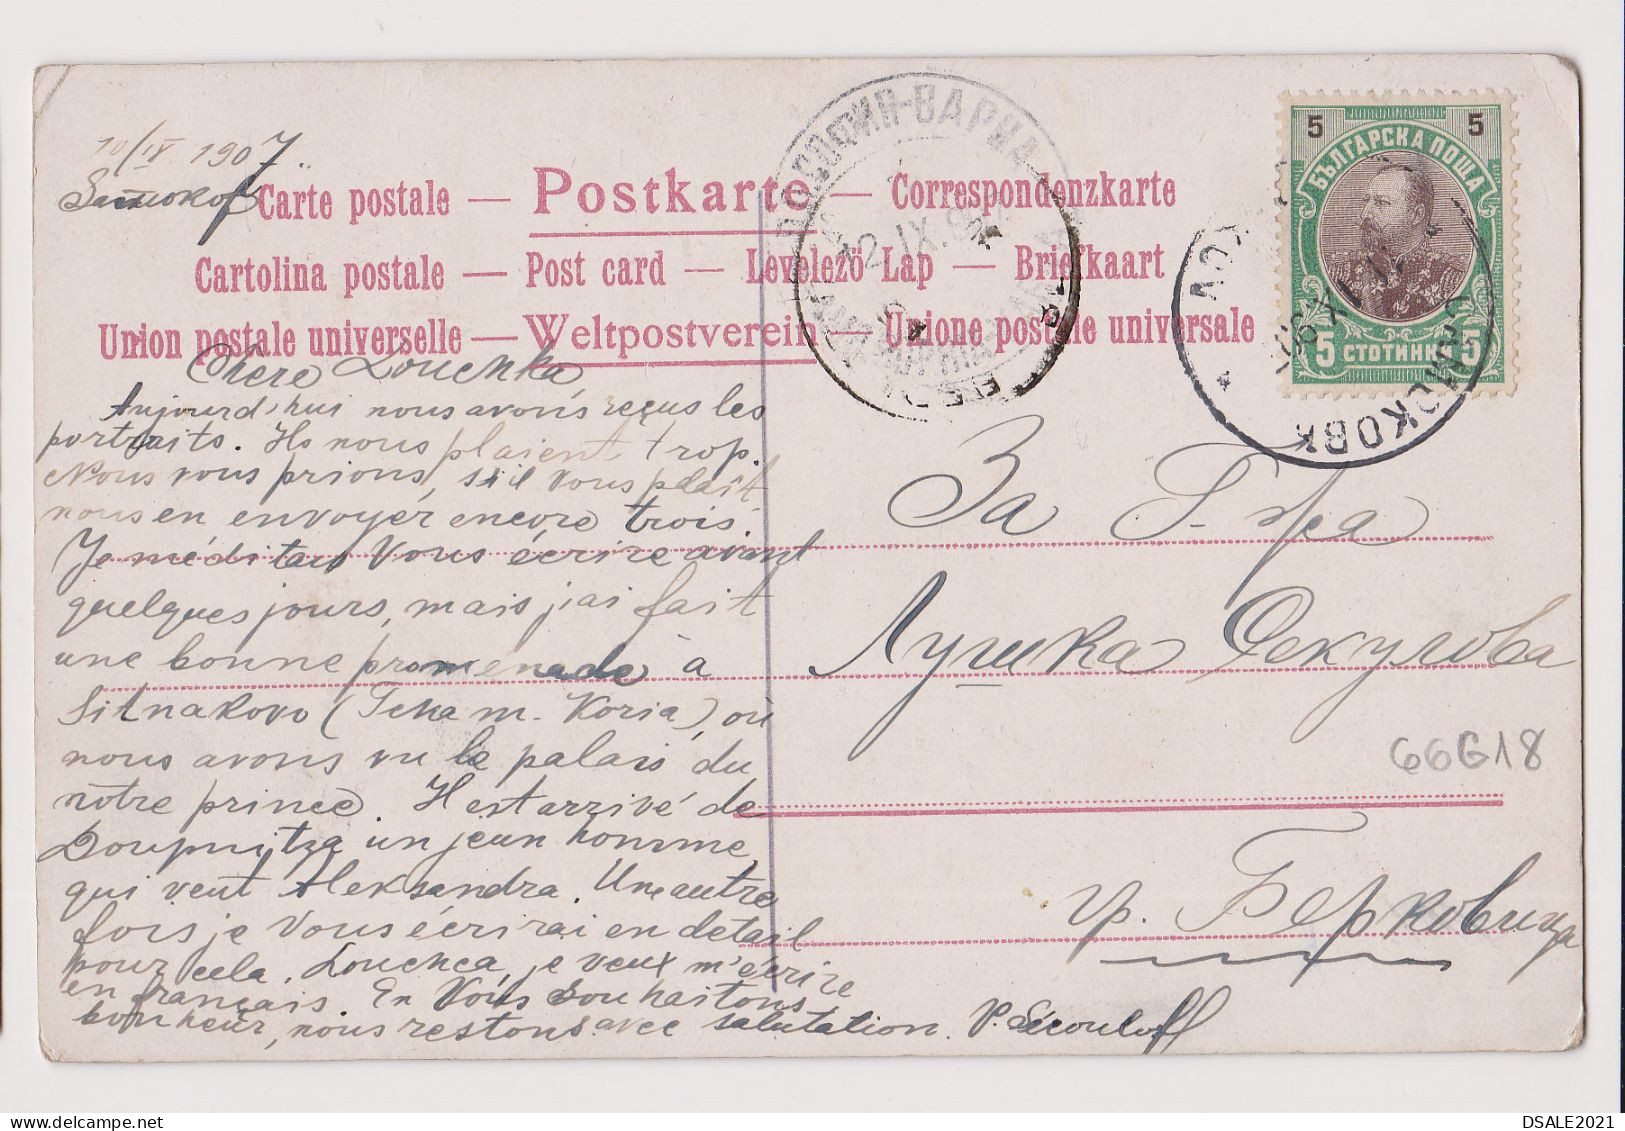 10/IX 1907.
Carte postale — Postkarte — Correspondenzkarte
Cartolina postale — Post card — Levelező Lap — Briefkaart
Union postale universelle — Weltpostverein — Unione postale universale
Chere Louchka
Aujourd'hui nous avons reçus les
portraits. Ils nous plaient trop.
Nous vous prions, s'il vous plaît
nous en envoyer encore trois.
Je méditais Vous écrire avant
quelques jours, mais j'ai fait
une bonne promenade à
Sitnakovo (Tcham-Koria) où
nous avons vu le palais du
notre prince. Il est arrivé de
Doupnitza un jeun homme,
qui veut Aleksandra. Une autre
fois je Vous écrirai en detail
pour cela. Louchca, je veux m'écrire
en français. En Vous souhaitons
bonheur, nous restons avec salutation. P. Sécouloff
5 5
БЪЛГАРСКА ПОЩА
5 СТОТИНКИ 5
СОФИЯ-ВАРНА
12.IX.
САМОКОВЪ
За Г-жа
Лушка Секулова
66G18
гр. Берковица
DSALE2021